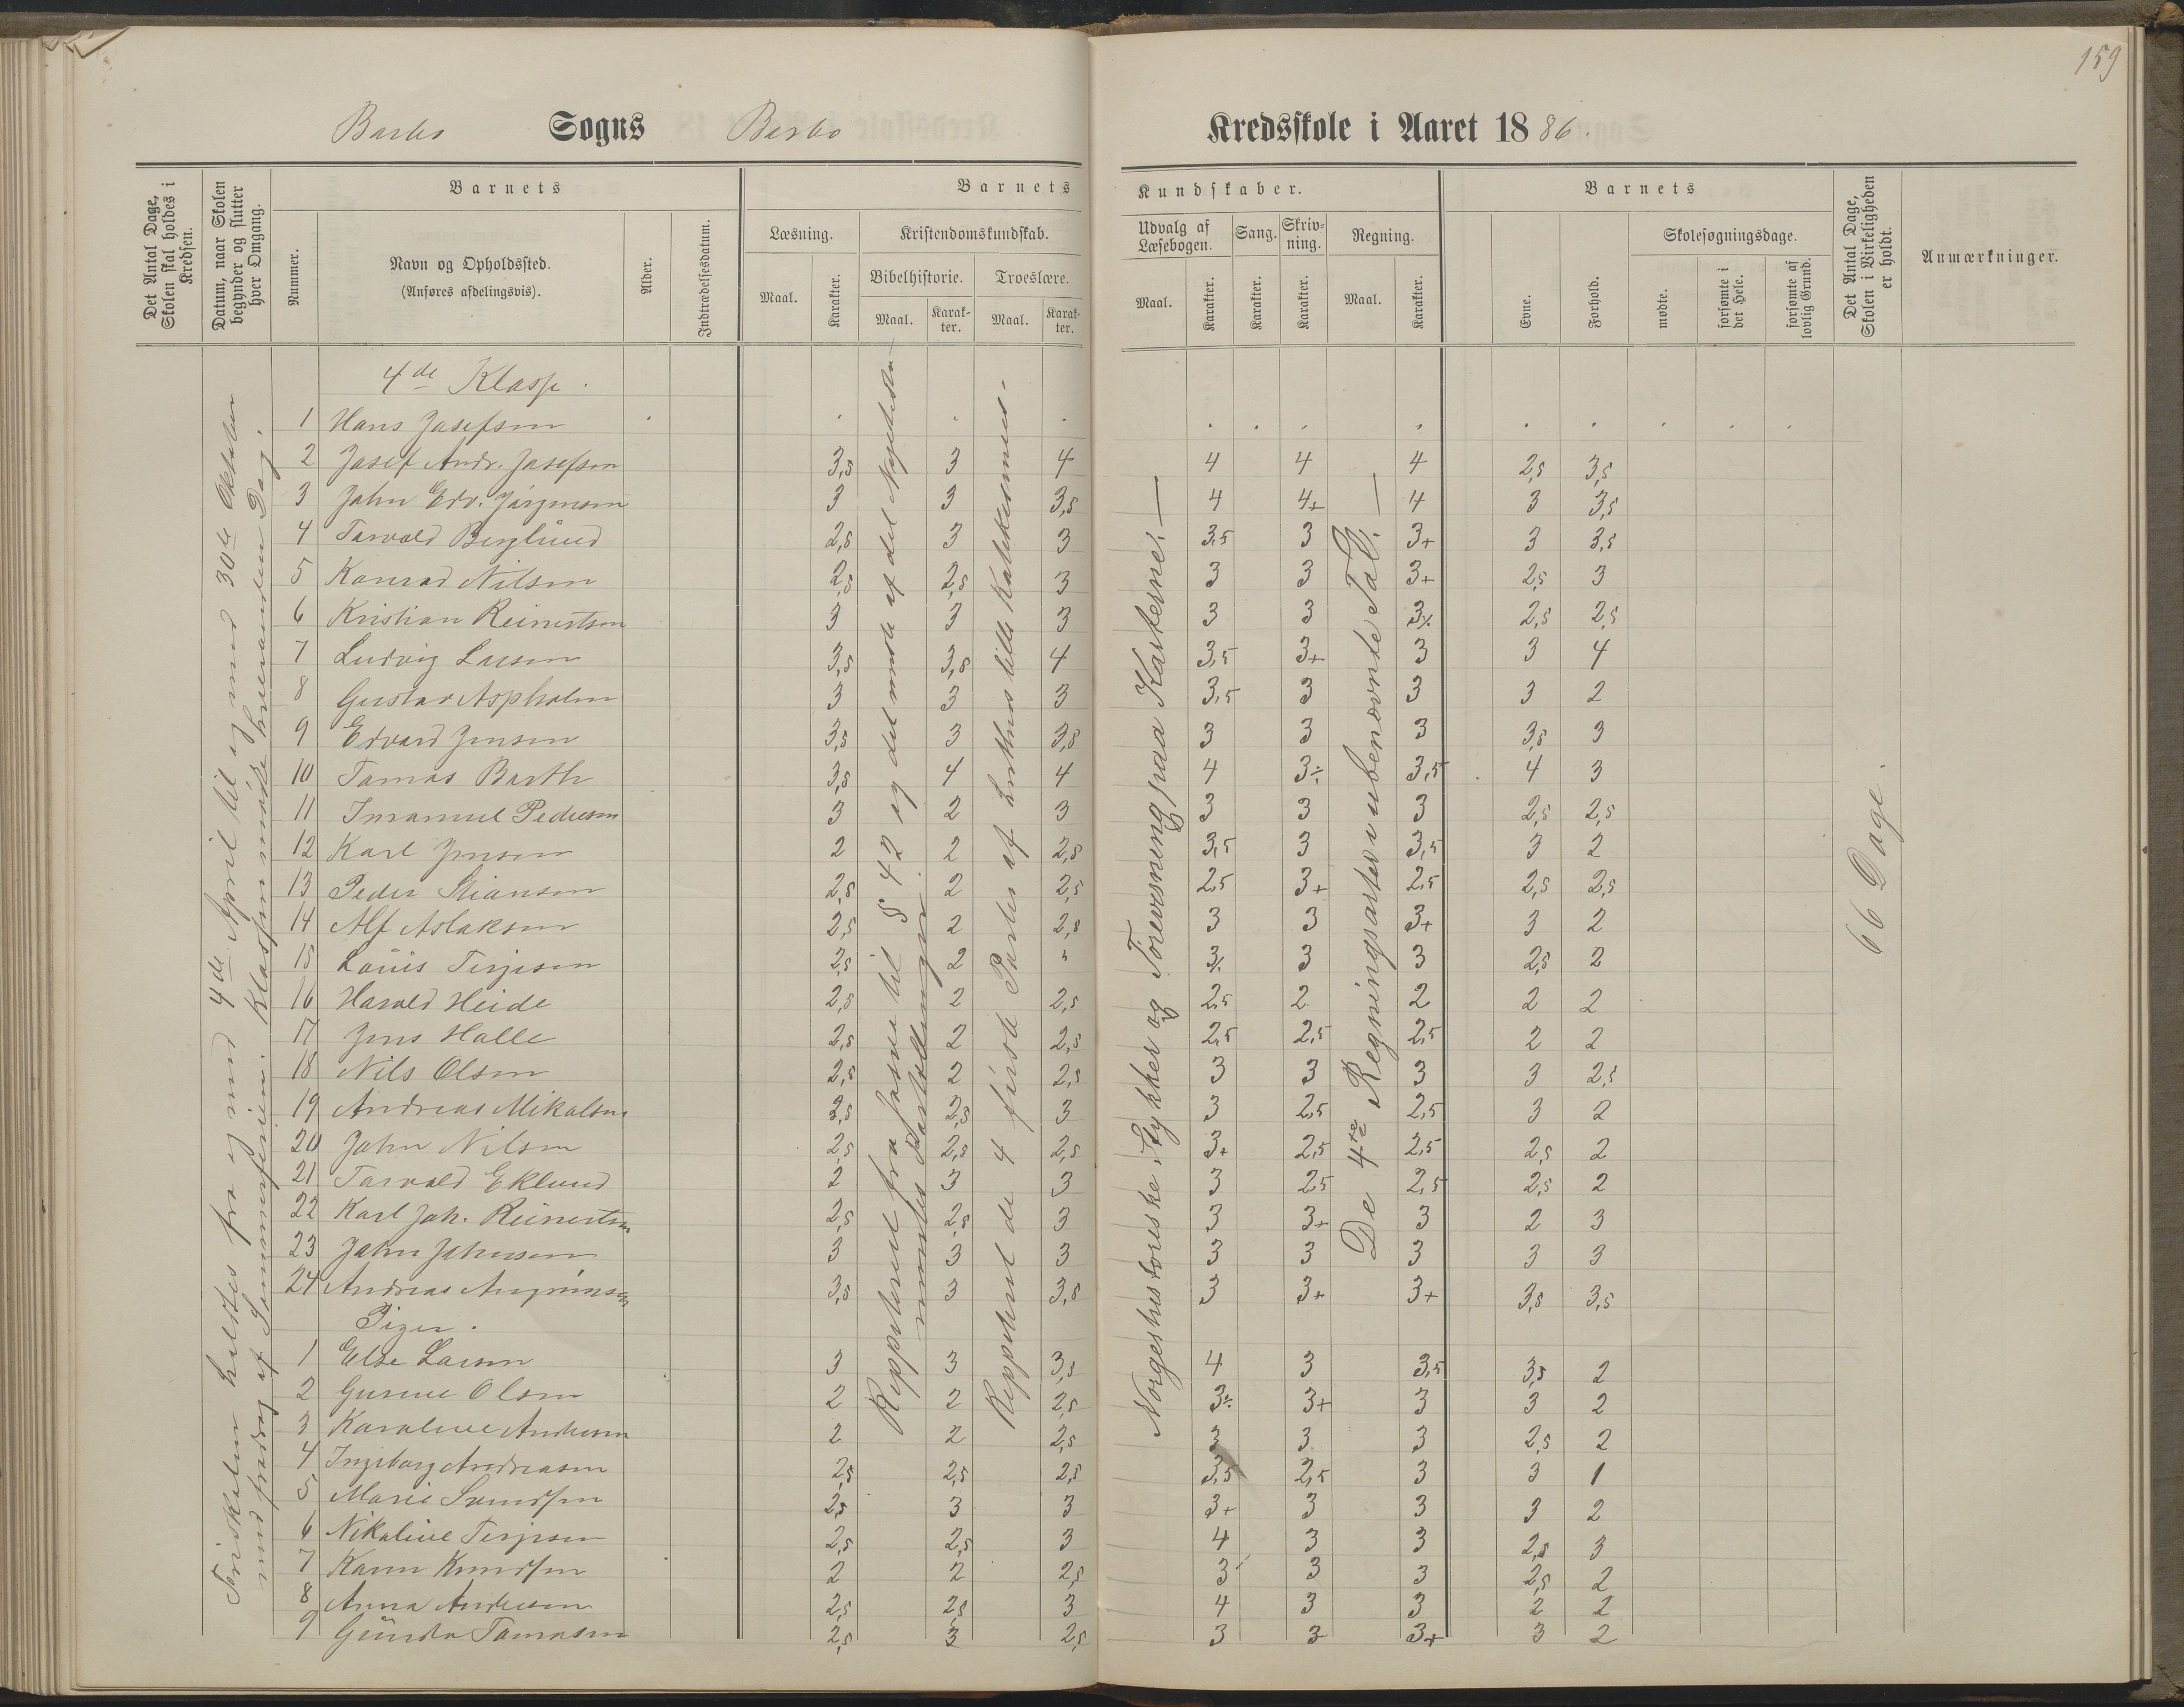 159
Barbo Sogns Barbo Kredsskole i Aaret 1886.
Det Antal Dage, Skolen skal holdes i Kredsen.
Datum, naar Skolen begynder og slutter hver Omgang.
Barnets
Nummer.
Navn og Opholdssted.
(Anføres afdelingsvis).
Alder.
Indtrædelsesdatum.
Barnets Kundskaber.
Læsning.
Maal.
Karakter.
Kristendomskundskab.
Bibelhistorie.
Maal.
Karakter.
Troeslære.
Maal.
Karakter.
Udvalg af Læsebogen.
Maal.
Karakter.
Sang.
Karakter.
Skrivning.
Karakter.
Regning.
Maal.
Karakter.
Barnets
Evne.
Forhold.
Skolesøgningsdage.
mødte.
forsømte i det Hele.
forsømte af lovlig Grund.
Det Antal Dage, Skolen i Virkeligheden er holdt.
Anmærkninger.
4de Klasse.
1 Hans Josefsen
2 Josef Andr. Josefsen 3,5 3 4 4 4 4 2,5 3,5
3 John Edv. Jörgensen 3 3 3,5 4 4+ 4 3 3,5
4 Torvald Berglund 2,5 3 3 3,5 3 3+ 3 3,5
5 Konrad Nilsen 2,5 2,5 3 3 3 3+ 2,5 3
6 Kristian Reinertsen 3 3 3 3 3 3⁒ 2,5 2,5
7 Ludvig Larsen 3,5 3,5 4 3,5 3+ 3 3 4
8 Gustav Aspholm 3 3 3 3,5 3 3 3 2
9 Edvard Jensen 3,5 3 3,5 3 3 3 3,5 3
10 Tomas Barth 3,5 4 4 4 3÷ 3,5 4 3
11 Imanuel Pedersen 3 2 3 3 3 3 2,5 2,5
12 Karl Jensen 2 2 2,5 3,5 3 3,5 3 2
13 Peder Stiansen 2,5 2 2,5 2,5 3+ 2,5 2,5 2,5
14 Alf Aslaksen 2,5 2 2,5 3 3 3+ 3 2
15 Louis Terjesen 2,5 2 " 3⁒ 3 3 2,5 2
16 Harald Heide 2,5 2 2,5 2,5 2 2 2 2
17 Jens Halle 2,5 2 2,5 2,5 2,5 2,5 2 2
18 Nils Olsen 2,5 2 2,5 3 3 3 3 2,5
19 Andreas Mikalsen 2,5 2,5 3 3 2,5 2,5 3 2
20 John Nilsen 2,5 2,5 2,5 3+ 2,5 2,5 2,5 2
21 Torvald Eklund 2 3 3 3 2,5 2,5 2,5 2
22 Karl Joh. Reinertsen 2,5 2,5 3 3 3+ 3 2 3
23 John Johnsen 3 3 3 3 3 3 3 3
24 Andreas 3,5 3 3,5 3 3+ 3+ 3,5 3,5
Piger.
1 Else Larsen 3 3 3,5 4 3 3,5 3,5 2
2 Gurine Olsen 2 2 2,5 3÷ 3+ 3 3 2
3 Karoline Andersen 2 2 2,5 3 3 3 2,5 2
4 Ingeborg Andreasen 2,5 2,5 2,5 3,5 2,5 3 3 1
5 Marie Svendsen 2,5 3 3 3+ 3 3 3 2
6 Nikoline Terjesen 2,5 2,5 3 4 3 3 2,5 3
7 Karen Knudsen 2 2 2,5 3 3 3 2,5 2
8 Anna Andersen 2,5 2,5 3 4 3 3 2 2
9 Gunda Tomasen 2,5 3 2,5 3 3 3+ 3 2
Storskolen holdtes fra og med 4de April til og med 30te Oktober
med fradrag af Sommerferien. Klassen mödte hveranden Dag.
Reppeteret fra Josva til § 42 og det meste af det Nytestam
mundtlig Fortællinger.
Reppeteret de 4 förste Parter af Luthers lille Katekismus.
Norgeshistoriske Stykker og Forevisning paa Karterne. —
De 4re Regningsarter i ubenævnte Tal. —
66 Dage.